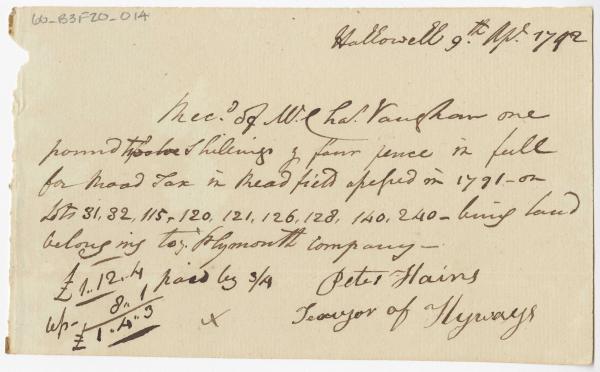 60-B3F20-014
Hallowell 9th Apl. 1792
Recd of Mr Chas. Vaughan one
pound twelve Shillings & four pence in full
for Road Tax in Readfield assesed in 1791 - on
Lots 31, 32, 115, 120, 121, 126, 128, 140, 240 - being land
belonging to ye Plymouth company -
£1..12..4 paid by 3/4 Peter Hains
8..1 Seavyor of Hyways
£1..4..3 x